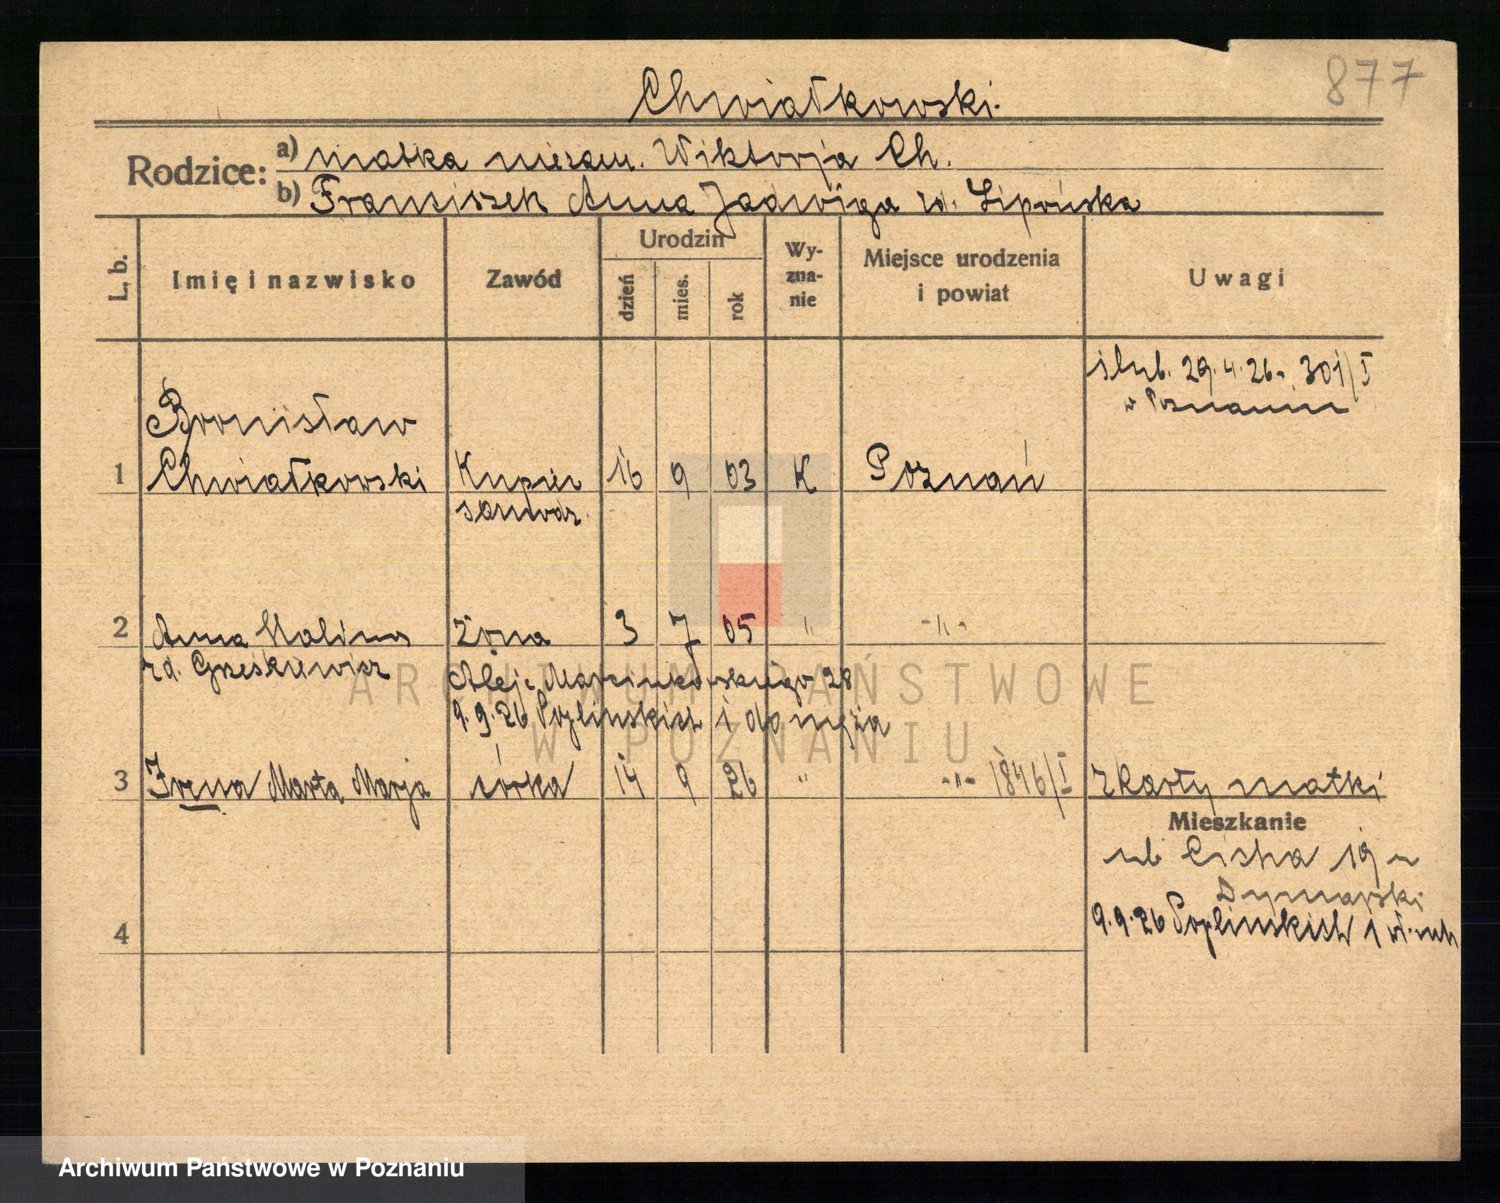 877
Chwiałkowski.
Rodzice: a) matka niezam. Wiktorja Ch.
b) Franciszek Anna Jadwiga z d. Lipińska
L. b.
Imię i nazwisko
Zawód
Urodzin
dzień
mies.
rok
Wy-
zna-
nie
Miejsce urodzenia
i powiat
Uwagi
ślub. 29.4.26 301/I
w Poznaniu
Bronisław
1 Chwiałkowski Kupiec 16 9 03 K Poznań
samodz.
2 Anna Halina żona 3 7 05 " -"-
zd. Grześkiewicz
Alej. Marcinkowskiego 28
9.9.26 Poplinskich 1 do męża
3 Irena Marta Marja córka 14 9 26 " -"- 1846/I z karty matki
Mieszkanie
Cicha 19
Dymarski
9.9.26 Poplinskich 1
4
ARCHIWUM PAŃSTWOWE
W POZNANIU
Archiwum Państwowe w Poznaniu